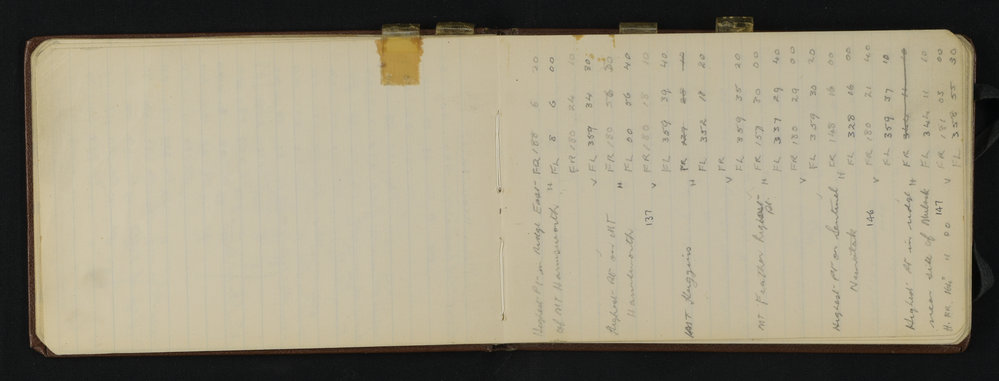 Highest Pt on Ridge East- FR 188 6 20
of MT Harmsworth H FL 8 6 00
FR 180 24 10
V FL 359 34
Highest Pt on MT FR 180 56 20
Harmsworth H FL 00 56 40
137 V FR 180 18 10
FL 359 39 40
MT Huggins H FR
FL 352 18 20
V FR
FL 359 35 20
MT Feather highest- H FR 157 30 00
pt. FL 337 29 40
V FR 180 29 00
FL 359 30 20
Highest PT on Sentinel H FR 148 16 00
Nunatak FL 328 16 00
146 V FR 180 21 40
FL 359 37 10
Highest Pt in ridge H FR 344 11 10
near side of Mulock FL 344 11 10
H. FR 164° 11 00 147 V FR 181 05 00
FL 358 55